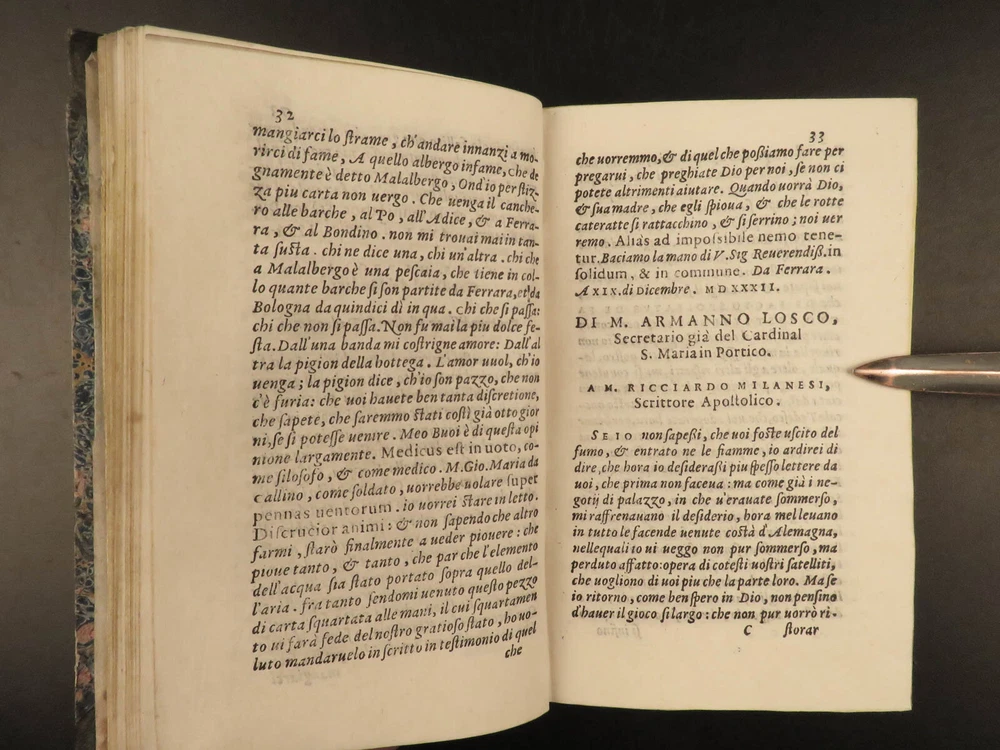 32
mangiarci lo ſtrame, ch'andare innanzi a mo-
rirci di fame, A quello albergo infame, che de
gnamente è detto Malalbergo, Ond'io per ſtiz-
za piu carta non uergo. Che uenga il canche-
ro alle barche, al Po, all'Adice, & a Ferra-
ra, & al Bondino. non mi trouai mai in tan-
ta ſuſta. chi ne dice una, chi un'altra. chi che
a Malalbergo è una peſcaia, che tiene in col-
lo quante barche ſi ſon partite da Ferrara, et da
Bologna da quindici dì in qua. chi che ſi paſſa:
chi che non ſi paſſa. Non fu mai la piu dolce fe-
ſta. Dall'una banda mi coſtrigne amore: Dall'al
tra la pigion della bottega. L'amor uuol, ch'io
uenga; la pigion dice, ch'io ſon pazzo, che non
c'è furia: che uoi hauete ben tanta diſcretione,
che ſapete, che ſaremmo ſtati coſtì già otto gior
ni, ſe ſi poteſſe uenire. Meo Buoi è di queſta opi
nione largamente. Medicus eſt in uoto, co-
me filoſofo, & come medico. M. Gio. Maria da
Callino, come ſoldato, uorrebbe uolare ſuper
pennas uentorum. io uorrei ſtare in letto.
Diſcrucior animi: & non ſapendo che altro
farmi, ſtarò finalmente a ueder piouere: che
pioue tanto, & tanto, che par che l'elemento
dell'acqua ſia ſtato portato ſopra quello del-
l'aria. fra tanto ſendomi uenuto queſto pezzo
di carta ſquartata alle mani, il cui ſquartamen
to ui farà fede del noſtro gratioſo ſtato, ho uo-
luto mandaruelo in ſcritto in teſtimonio di quel
che
33
che uorremmo, & di quel che poßiamo fare per
pregarui, che preghiate Dio per noi, ſe non ci
potete altrimenti aiutare. Quando uorrà Dio,
& ſua madre, che egli ſpioua, & che le rotte
cateratte ſi rattacchino, & ſi ſerrino; noi uer
remo. Aliàs ad impoſsibile nemo tene-
tur. Baciamo la mano di V. Sig Reuerendiß. in
ſolidum, & in commune. Da Ferrara.
A XIX. di Dicembre. MDXXXII.
DI M. ARMANNO LOSCO,
Secretario già del Cardinal
S. Maria in Portico.
A M. RICCIARDO MILANESI,
Scrittore Apoſtolico.
SE IO non ſapeßi, che uoi foſte uſcito del
fumo, & entrato ne le fiamme, io ardirei di
dire, che hora io deſideraßi piu ſpeſſo lettere da
uoi, che prima non faceua: ma come già i ne-
gotij di palazzo, in che u'erauate ſommerſo,
mi raffrenauano il deſiderio, hora me'l leuano
in tutto le facende uenute coſtà d'Alemagna,
nelle quali io ui ueggo non pur ſommerſo, ma
perduto affatto: opera di coteſti uoſtri ſatelliti,
che uogliono di uoi piu che la parte loro. Ma ſe
io ritorno, come ben ſpero in Dio, non penſino
d'hauer il gioco ſi largo: che non pur uorrò ri-
C ſtorar